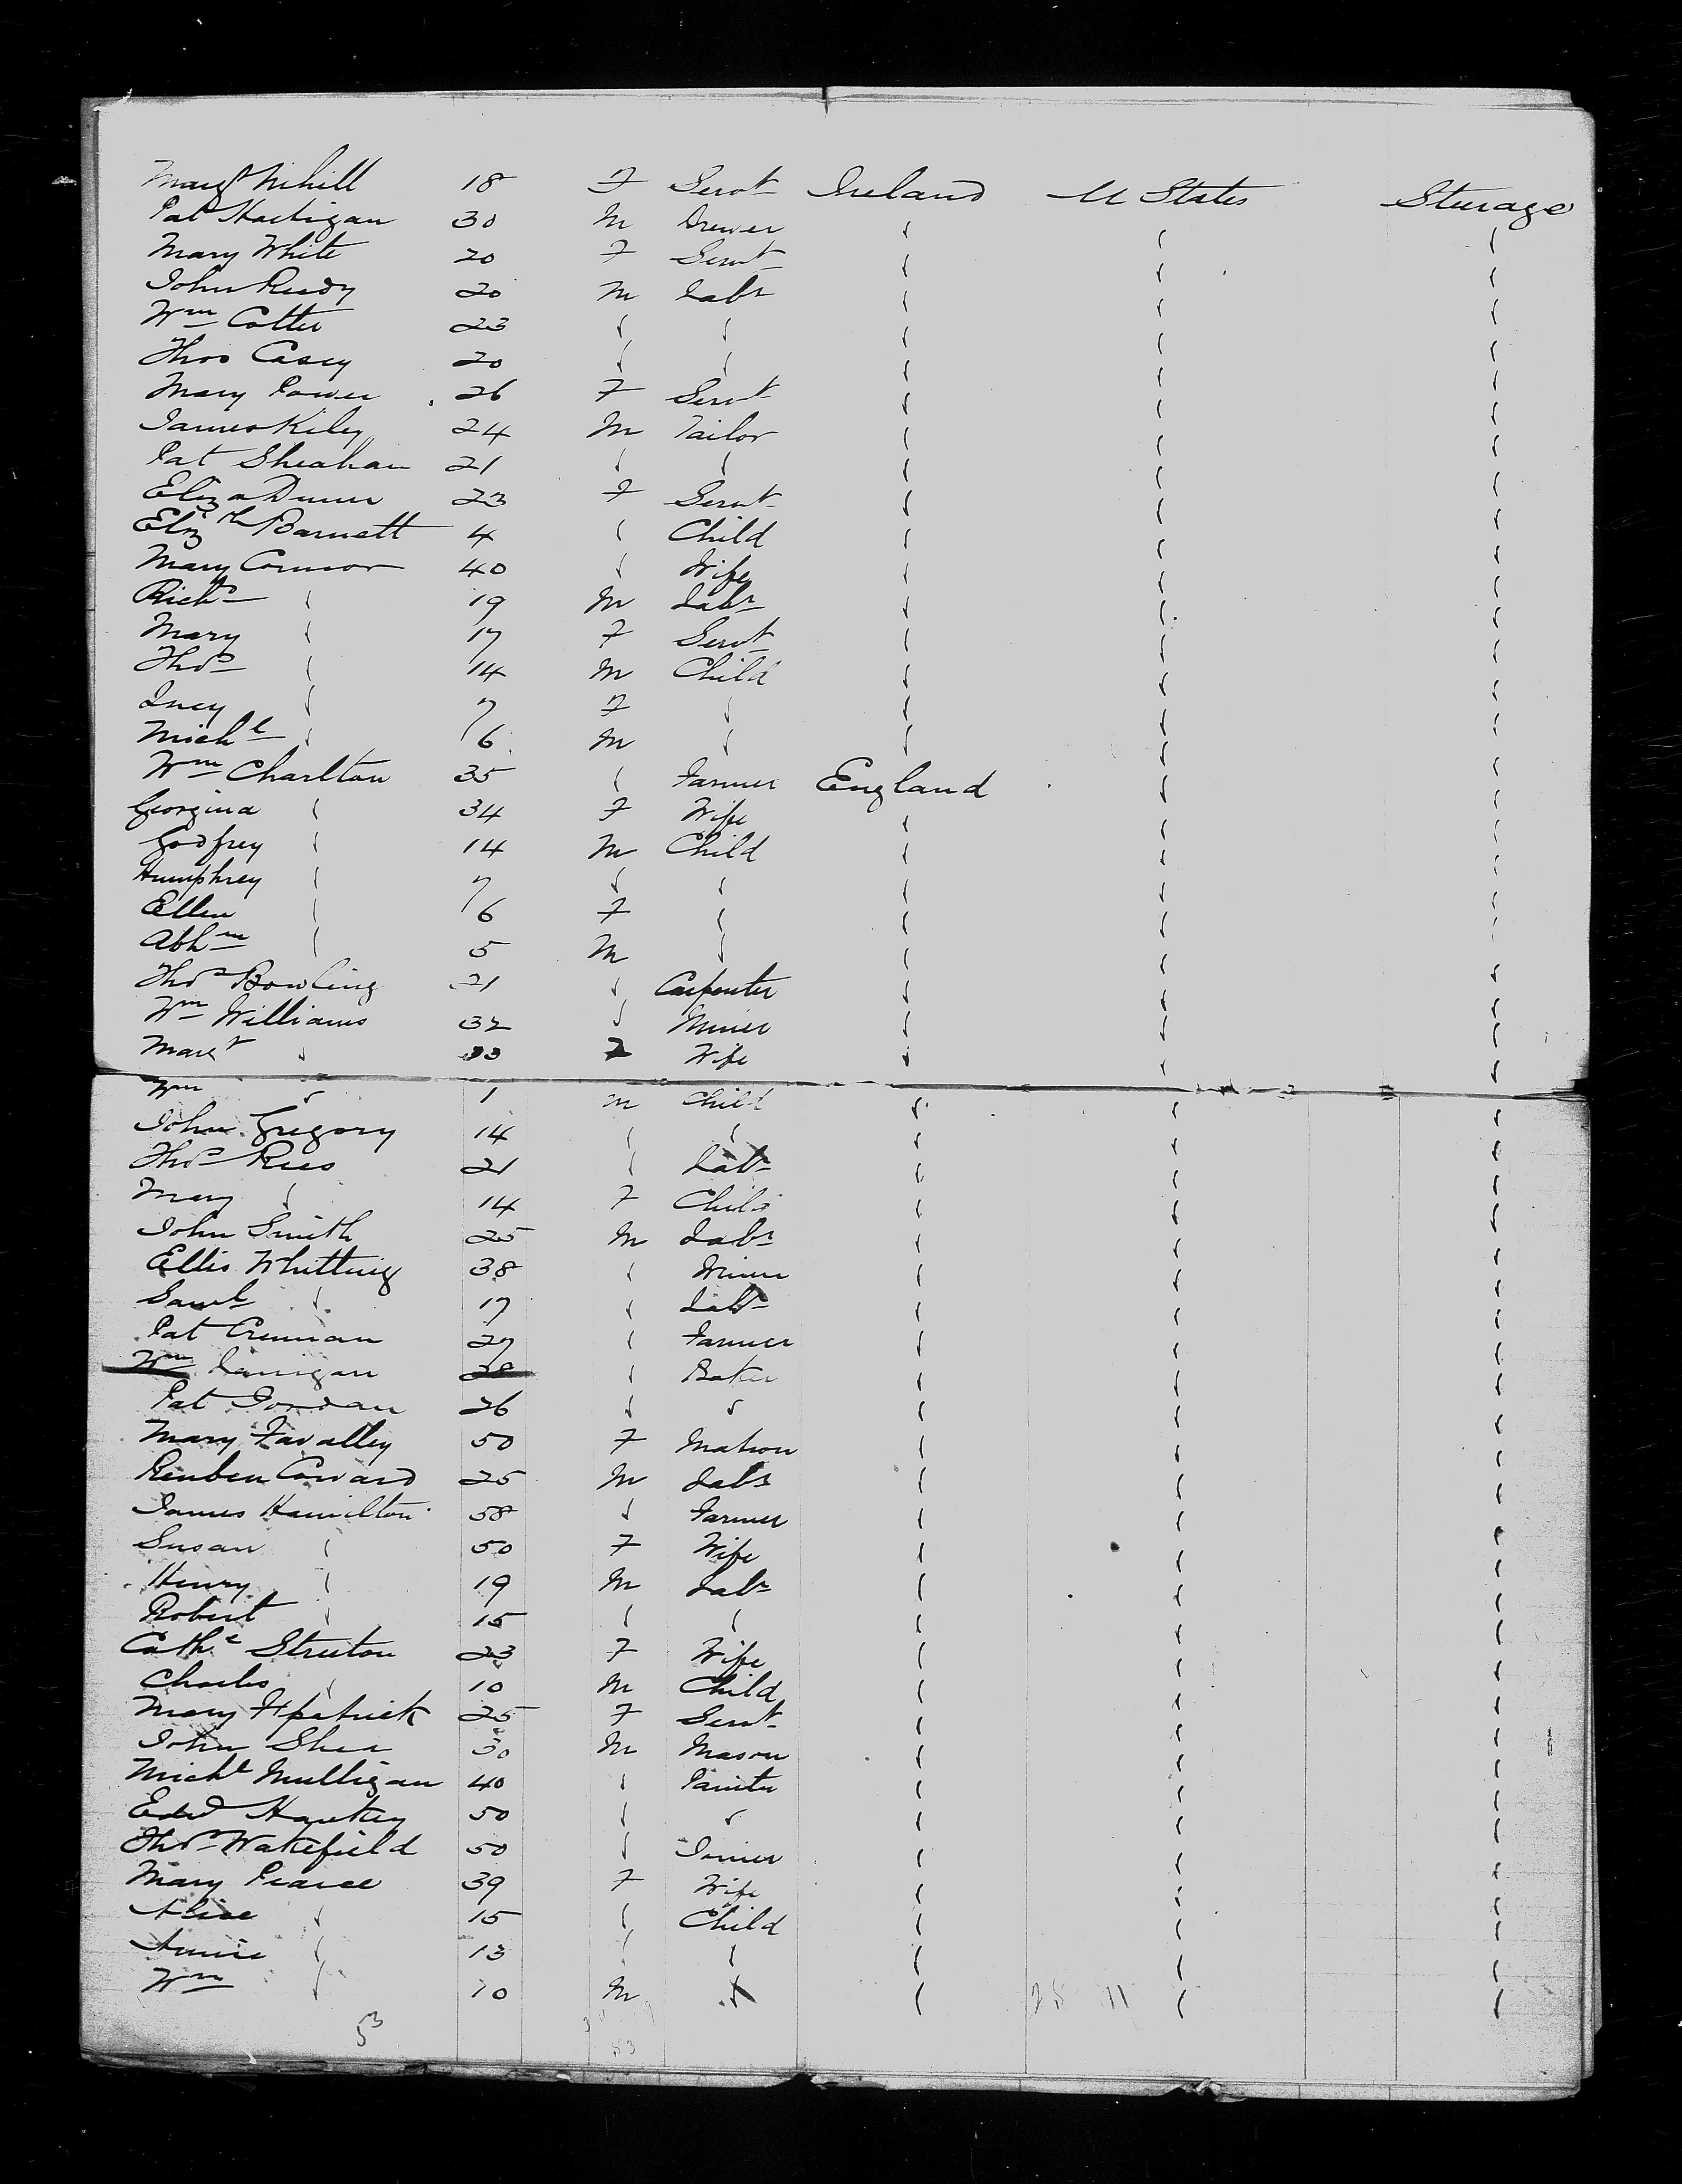 Margt Nihill 18 F Servt Ireland U States Steerage
Pat Hartigan 30 M Drover " " "
Mary White 20 F Servt " " "
John Reidy 20 M Labr " " "
Wm Cotter 23 " " " " "
Thos Casey 20 " " " " "
Mary Power 26 F Servt " " "
James Kiley 24 M Tailor " " "
Pat Sheahan 21 " " " " "
Eliza Dunn 23 F Servt " " "
Elizth Barnett 4 " Child " " "
Mary Connor 40 " Wife " " "
Richd " 19 M Labr " " "
Mary " 17 F Servt " " "
Thos " 14 M Child " " "
Lucy " 7 F " " " "
Michl " 6 M " " " "
Wm Charlton 35 " Farmer England " "
Georgina " 34 F Wife " " "
Godfrey " 14 M Child " " "
Humphrey " 7 " " " " "
Ellen " 6 F " " " "
Abhm " 5 M " " " "
Thos Bowling 21 " Carpenter " " "
Wm Williams 32 " Miner " " "
Margt " 33 F Wife " " "
Wm " 1 M Child " " "
John Gregory 14 " " " " "
Thos Rees 21 " Labr " " "
Mary " 14 F Child " " "
John Smith 25 M Labr " " "
Ellis Whitting 38 " Miner " " "
Saml " 17 " Labr " " "
Pat Crennan 27 " Farmer " " "
Wm Lanigan 28 " Baker " " "
Pat Jordan 26 " " " " "
Mary Favalley 50 F Matron " " "
Reuben Coward 25 M Labr " " "
James Hamilton 58 " Farmer " " "
Susan " 50 F Wife " " "
Henry " 19 M Labr " " "
Robert " 15 " " " " "
Cathe Streeton 23 F Wife " " "
Charles " 10 M Child " " "
Mary Fpatrick 25 F Servt " " "
John Shea 30 M Mason " " "
Michl Mulligan 40 " Painter " " "
Edwd 50 " " " " "
Thos Wakefield 50 " Joiner " " "
Mary Pearce 39 F Wife " " "
Alice " 15 " Child " " "
Annie " 13 " " " " "
Wm " 10 M " " " "
53